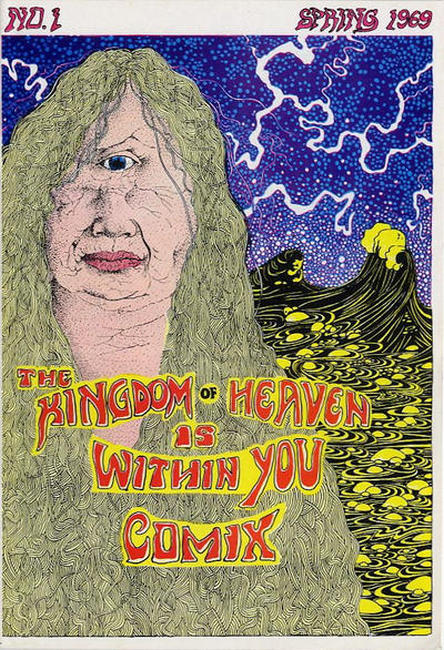 NO.1 SPRING 1969
THE
KINGDOM OF HEAVEN
IS
WITHIN YOU
COMIX